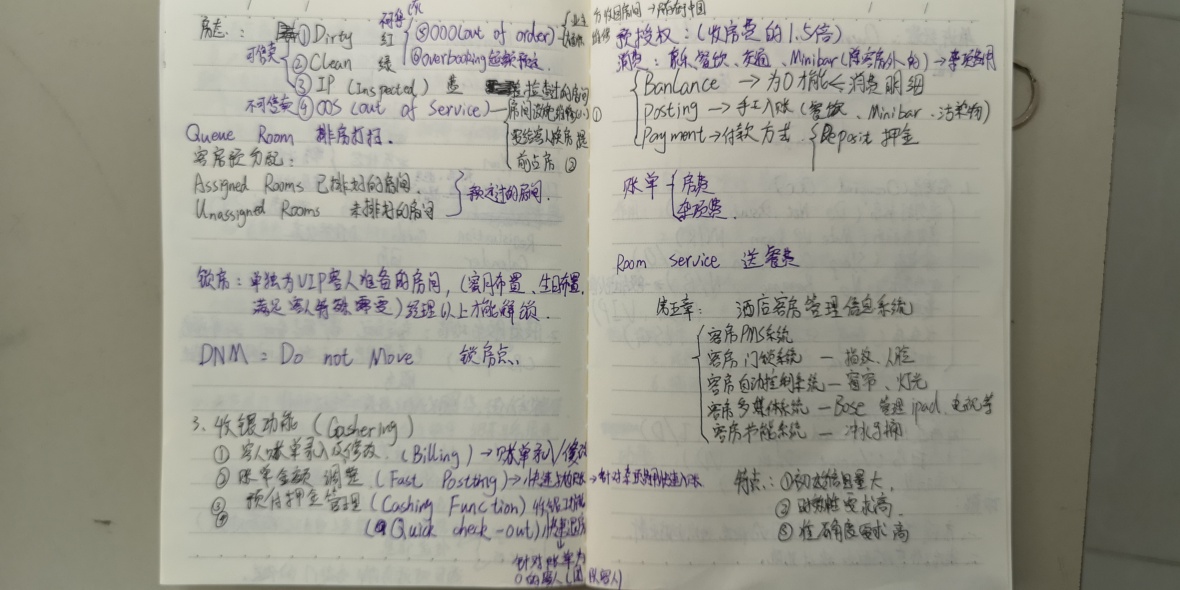 房态：
可售卖
① Dirty 红
② Clean 绿
③ IP (Inspected) 蓝 检查过的房间
⑤ OOO (out of order)
⑥ overbooking 超额预定
不可售卖 ④ OOS (out of Service)
前占房 ②
Queue Room 排房打扫.
客房预分配：
Assigned Rooms 已排好的房间.
Unassigned Rooms 未排好的房间
预定过的房间.
锁房：单独为VIP客人准备的房间，(蜜月布置、生日布置,
满足客人特殊需要) 经理以上才能解锁.
DNM = Do not Move 锁房点.
3. 收银功能 (Cashering)
① 客人账单录入及修改. (Billing) → 账单录入/修改
② 账单金额调整 (Fast Postting) → 快速入账 → 针对杂项费用快速入账
③ 预付押金管理 (Cashing Function) 收银功能
④ (Quick check-out) 快速退房
针对账单为
0的客人 (团队客人)
预授权：(收房费的1.5倍)
消费：娱乐、餐饮、交通、Minibar (除客房外的) → 杂项费用
Banlance → 为0才能 消费明细
Posting → 手工入账 (餐饮、Minibar、污染物)
Payment → 付款方式
Deposit 押金
账单
房费
杂项费.
Room service 送餐费
第五章： 酒店客房管理信息系统
客房PMS系统
客房门锁系统 — 指纹、人脸
客房自动控制系统 — 窗帘、灯光
客房多媒体系统 — Bose 管理 ipad、电视等
客房节能系统 — 冲水马桶
特点：① 初始信息量大.
② 时效性要求高.
③ 准确度要求高